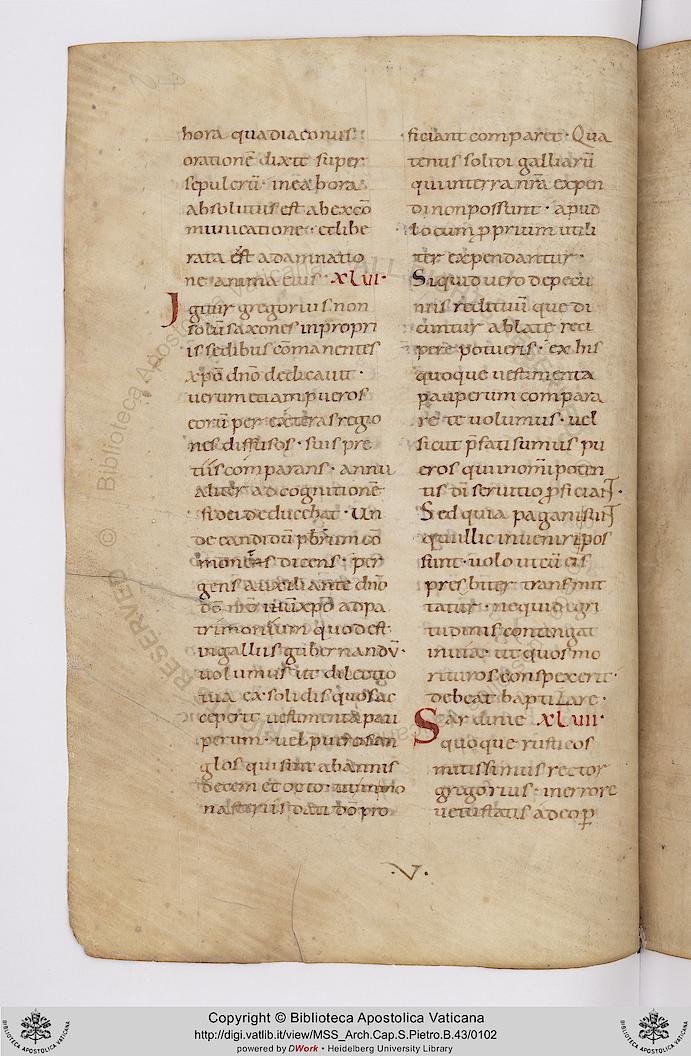 hora qua diaconus
orationē dixit super
sepulcrū · in ea hora
absolutus est ab excō
municatione · et libe
rata est a damnatio
ne anima eius · xlvi ·
Igitur gregorius non
solū saxones in propri
is sedibus cōmanentes
xpō dnō dedicavit ·
verum etiam pueros
eorū per exteras regio
nes diffusos · suis pre
tiis comparans · annu
aliter ad cognitionē
fidei deducebat · Un
de candidū pbrum cō
monens dicens · per
gens auxiliante dnō
dō nrō ihū xpō ad pa
trimonium quod est
in galliis gubernandū ·
volumus ut dilectio
tua ex solidis quos ac
ceperit vestimenta pau
perum · vel pueros an
glos qui sint ab annis
decem et octo · ut in mo
nasteriis dati dō pro
ficiant comparet · Qua
tenus solidi galliarū
qui in terra nr̄a expen
di non possunt · apud
locum p̄prium utili
ter expendantur ·
Si quid vero de pecu
niis redituū que di
cuntur ablate reci
pere potueris · ex his
quoque vestimenta
pauperum compara
re te volumus · vel
sicut p̄fati sumus pu
eros qui in om̄ipoten
tis dī servitio p̄ficiant ·
Sed quia pagani sunt
qui illic inveniri pos
sunt · volo ut cū eis
presbiter transmit
tatur · ne quid egri
tudinis contingat
in via · ut quos mo
rituros conspexerit ·
debeat baptizare ·
Sardinie xlvii ·
quoque rusticos
mitissimus rector
gregorius · in errore
vetustatis adeo p̄
· V ·
Copyright © Biblioteca Apostolica Vaticana
http://digi.vatlib.it/view/MSS_Arch.Cap.S.Pietro.B.43/0102
powered by DWork · Heidelberg University Library